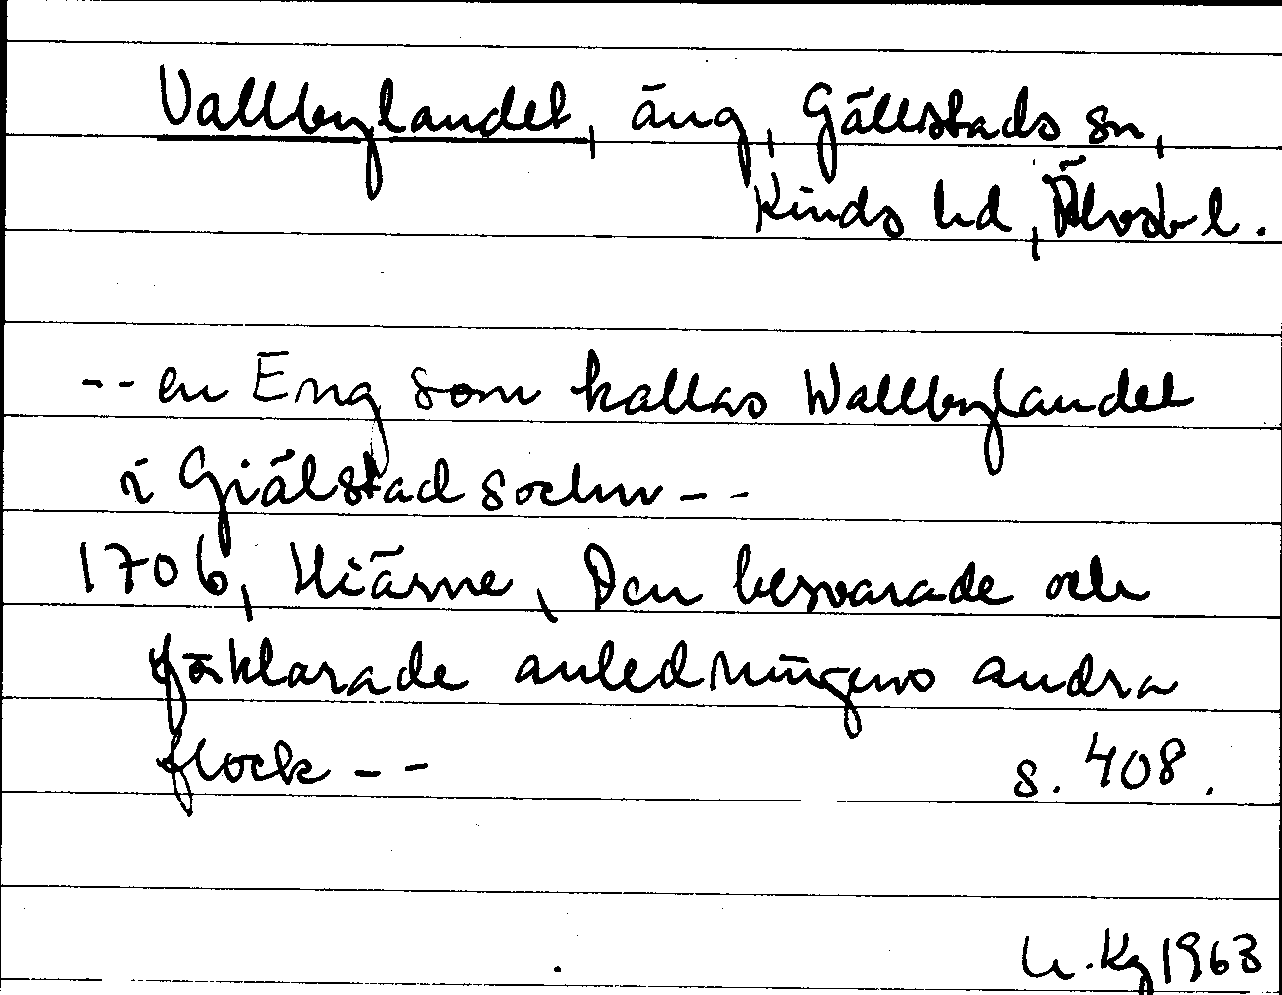 Vallbylandet, äng, Gällstads sn,
Kinds hd, Älvsb l.
-- en Eng som kallas Wallbylandet
i Giälstad sochn --
1706, Hiärne, Den besvarade och
förklarade anledningens andra
flock -- s. 408.
Kg 1963